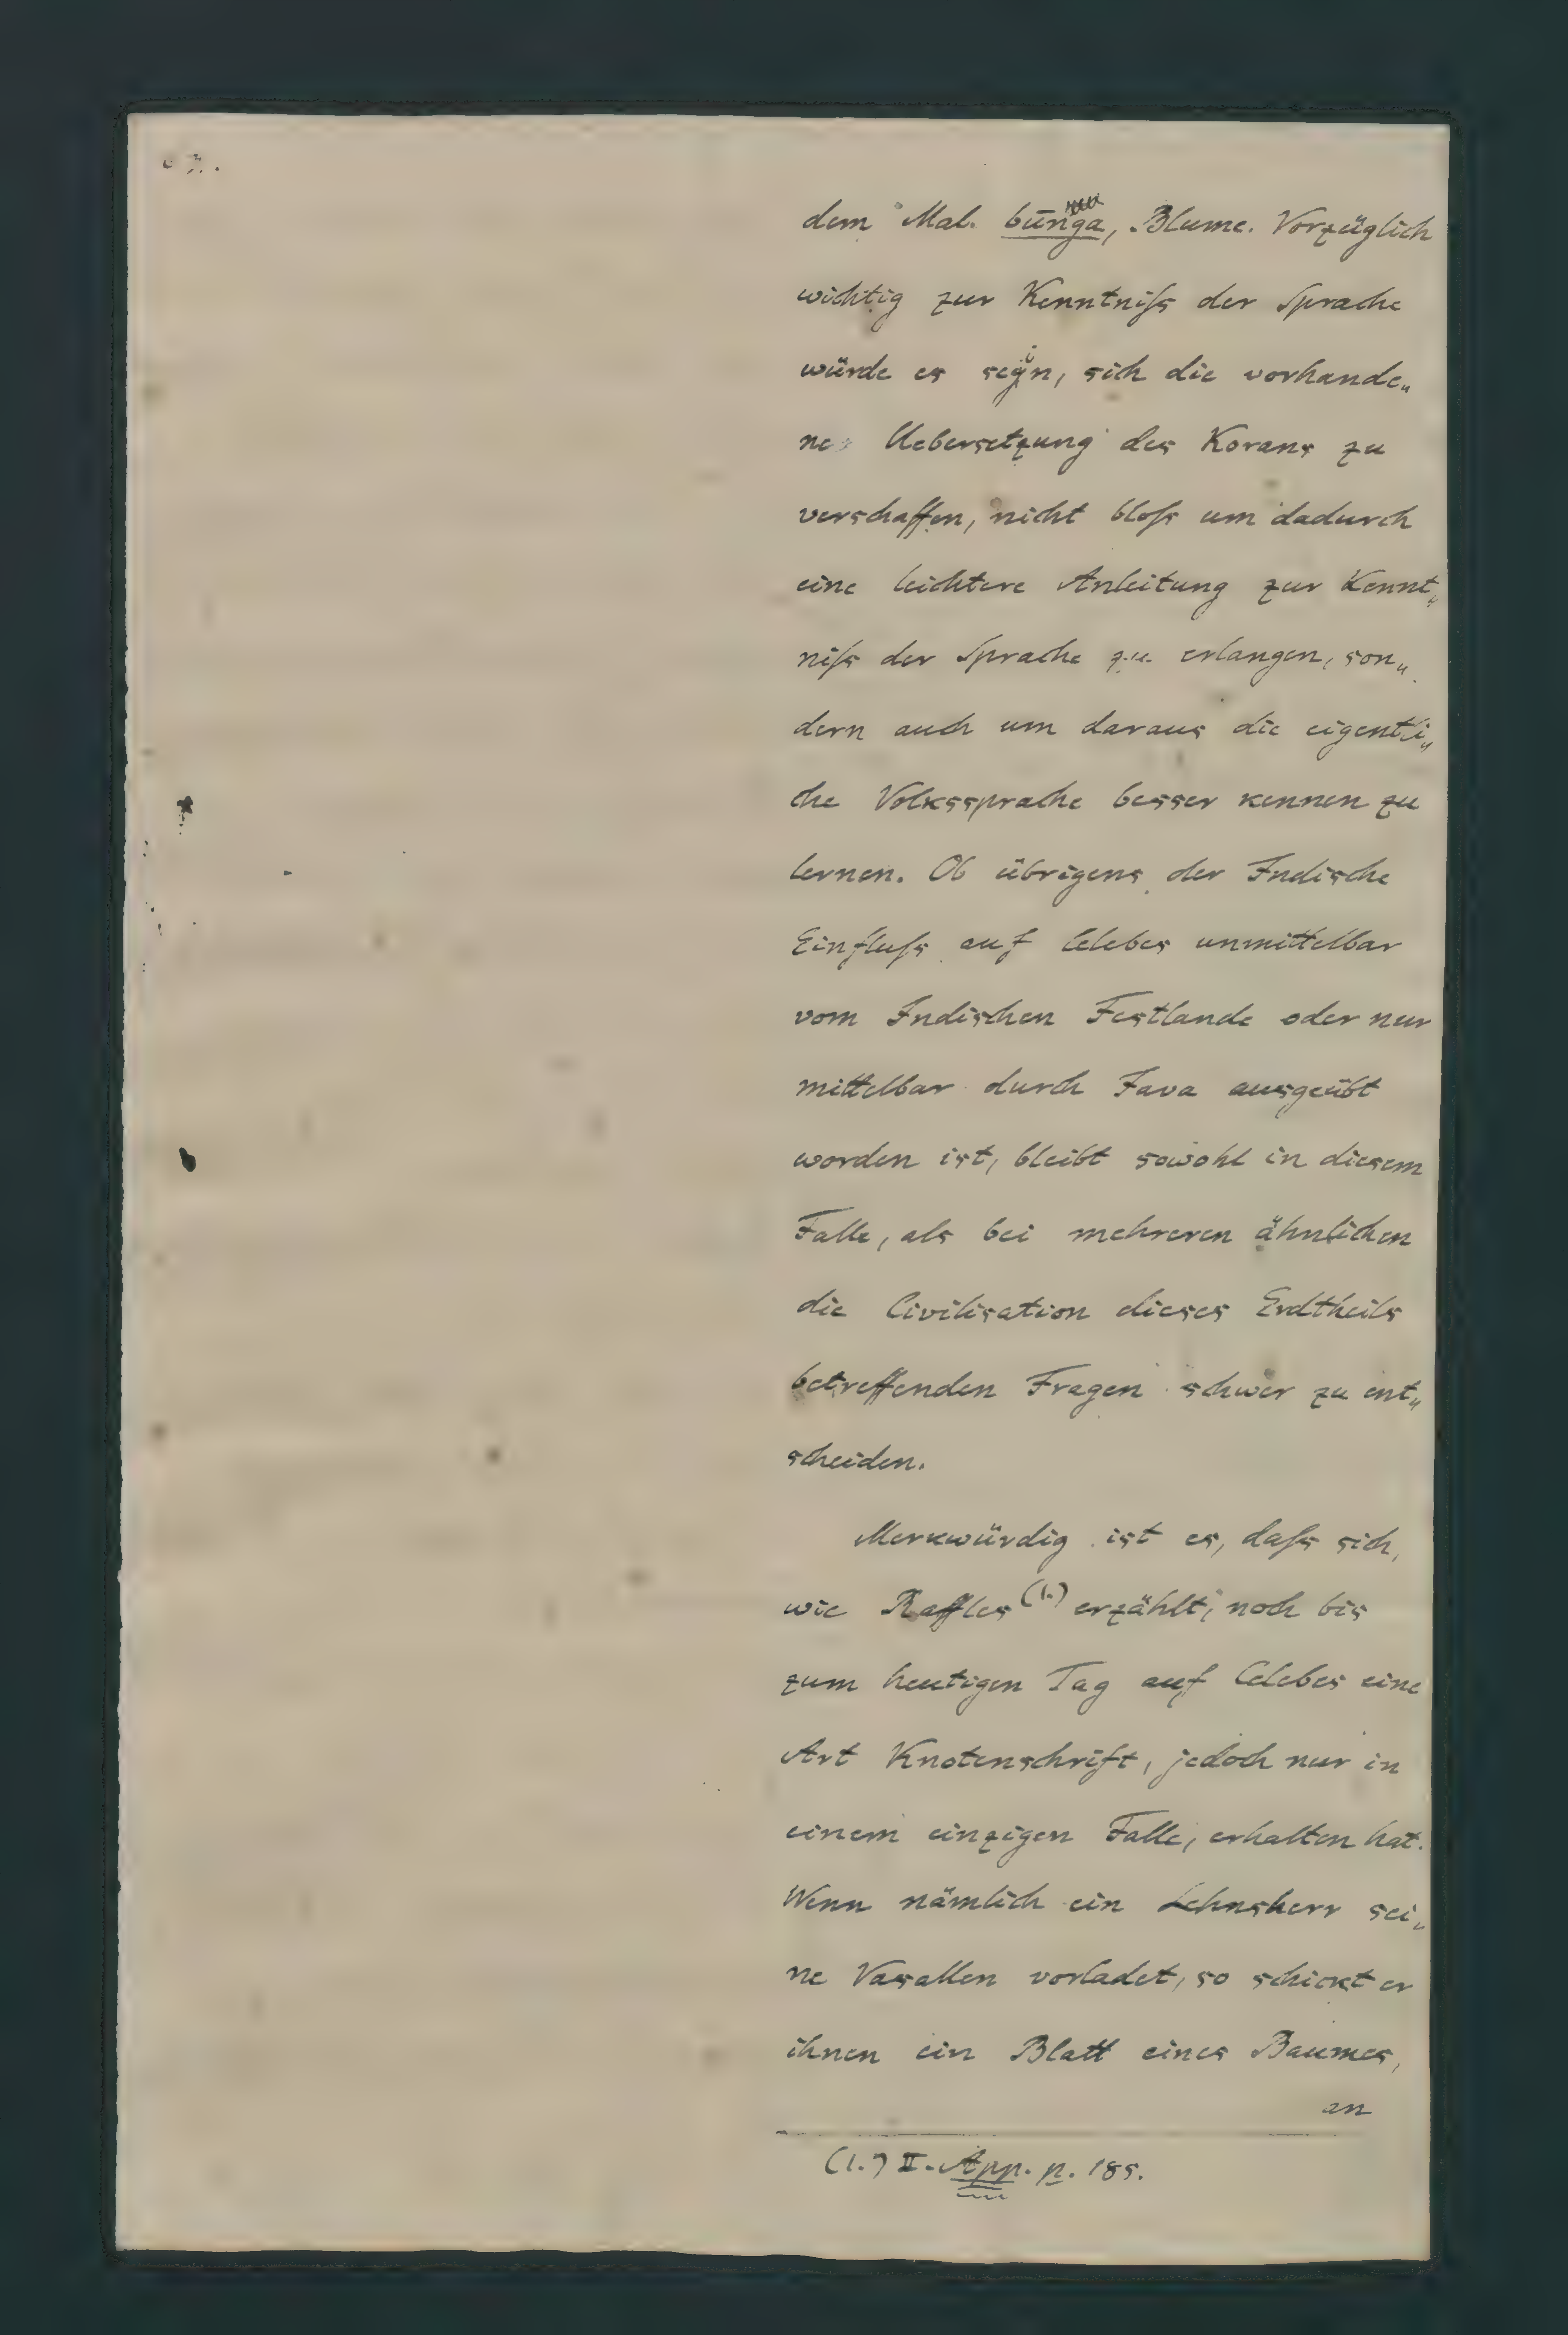 dem Mal. būnga, Blume. Vorzüglich
wichtig zur Kenntniſs der Sprache
würde es seyn, sich die vorhande„
ne Uebersetzung des Korans zu
verschaffen, nicht bloſs um dadurch
eine leichtere Anleitung zur Kennt„
niſs der Sprache zu erlangen, son„
dern auch um daraus die eigentli„
che Volkssprache besser kennen zu
lernen. Ob übrigens der Indische
Einfluſs auf Celebes unmittelbar
vom Indischen Festlande oder nur
mittelbar durch Java ausgeübt
worden ist, bleibt sowohl in diesem
Falle, als bei mehreren ähnlichen
die Civilisation dieses Erdtheils
betreffenden Fragen schwer zu ent„
scheiden.
Merkwürdig ist es, daſs sich,
wie Raffles (1.) erzählt, noch bis
zum heutigen Tag auf Celebes eine
Art Knotenschrift, jedoch nur in
einem einzigen Falle, erhalten hat.
Wenn nämlich ein Lehnsherr sei„
ne Vasallen vorladet, so schickt er
ihnen ein Blatt eines Baumes,
an
(1.) II. App. p. 185.